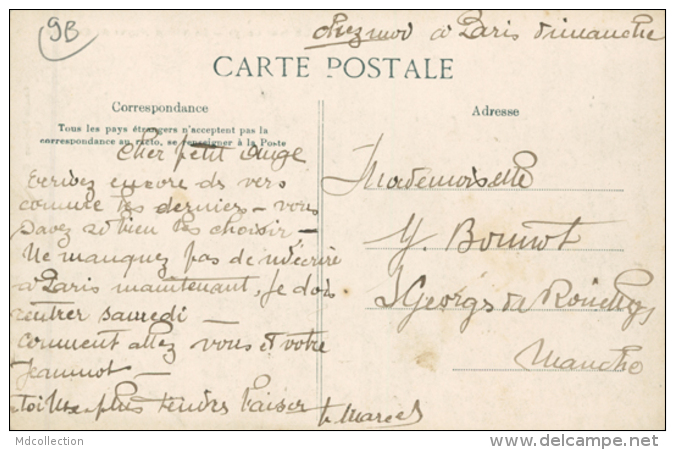 9B
chez moi à Paris dimanche
CARTE POSTALE
Correspondance
Tous les pays étrangers n'acceptent pas la
correspondance au recto, se renseigner à la Poste
Adresse
Cher petit Ange
Ecrivez encore des vers
comme les derniers - vous
savez si bien les choisir -
Ne manquez pas de m'écrire
à Paris maintenant, je dois
rentrer samedi -
comment allez vous et votre
Jeannot -
plus tendre baiser
Marcel
Mademoiselle
Y. Bonnot
St Georges de
Manche
Mdcollection
www.delcampe.net